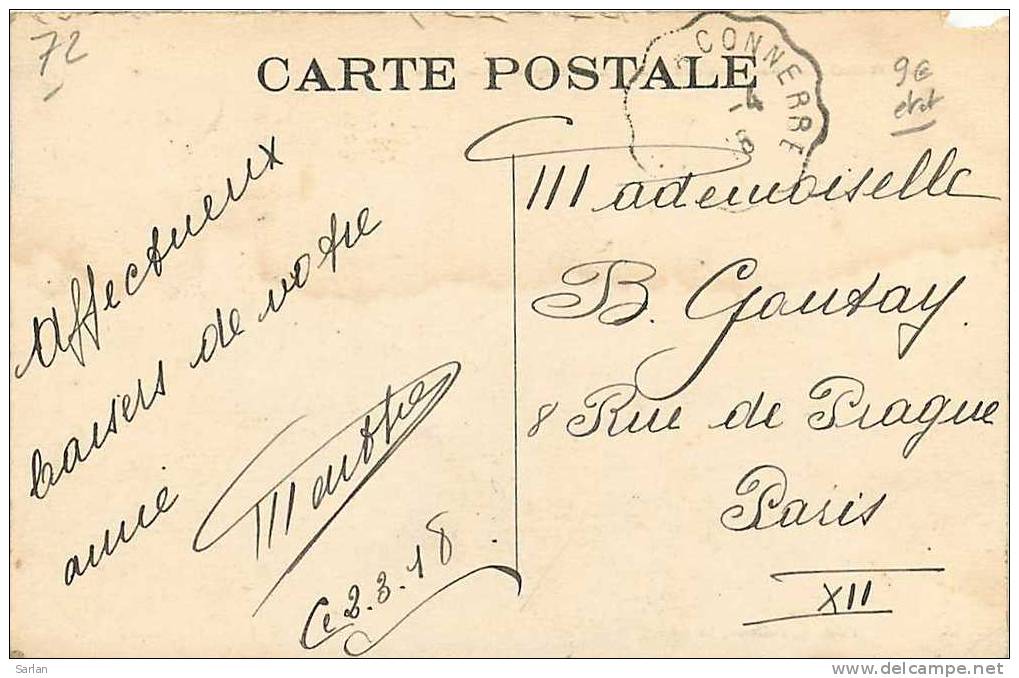 72
CARTE POSTALE
CONNERRÉ
9€
état
Affectueux
baisers de votre
amie
Marthe
Ce 2.3.18
Mademoiselle
B. Goutay
8 Rue de Prague
Paris
XII
Sarlan
www.delcampe.net